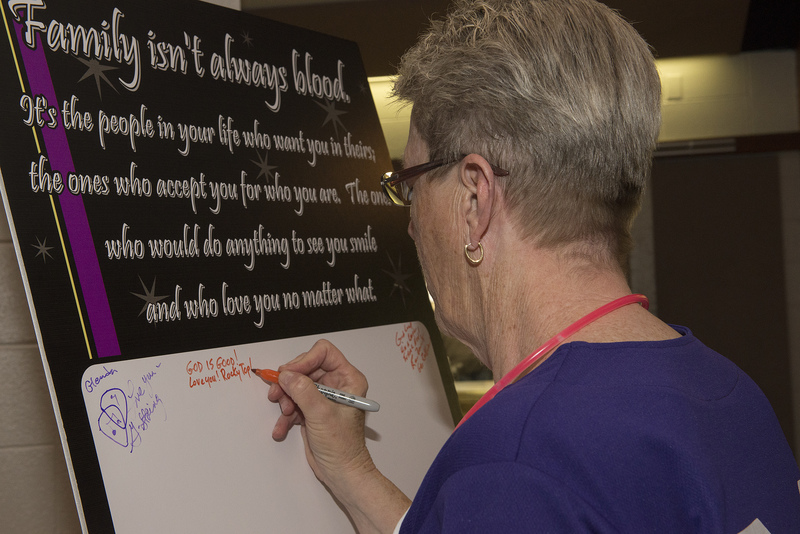 Family isn't always blood.
It's the people in your life who want you in theirs;
the ones who accept you for who you are. The one
who would do anything to see you smile
and who love you no matter what.
GOD IS GOOD!
Love you! Rocky Top!
Glenda